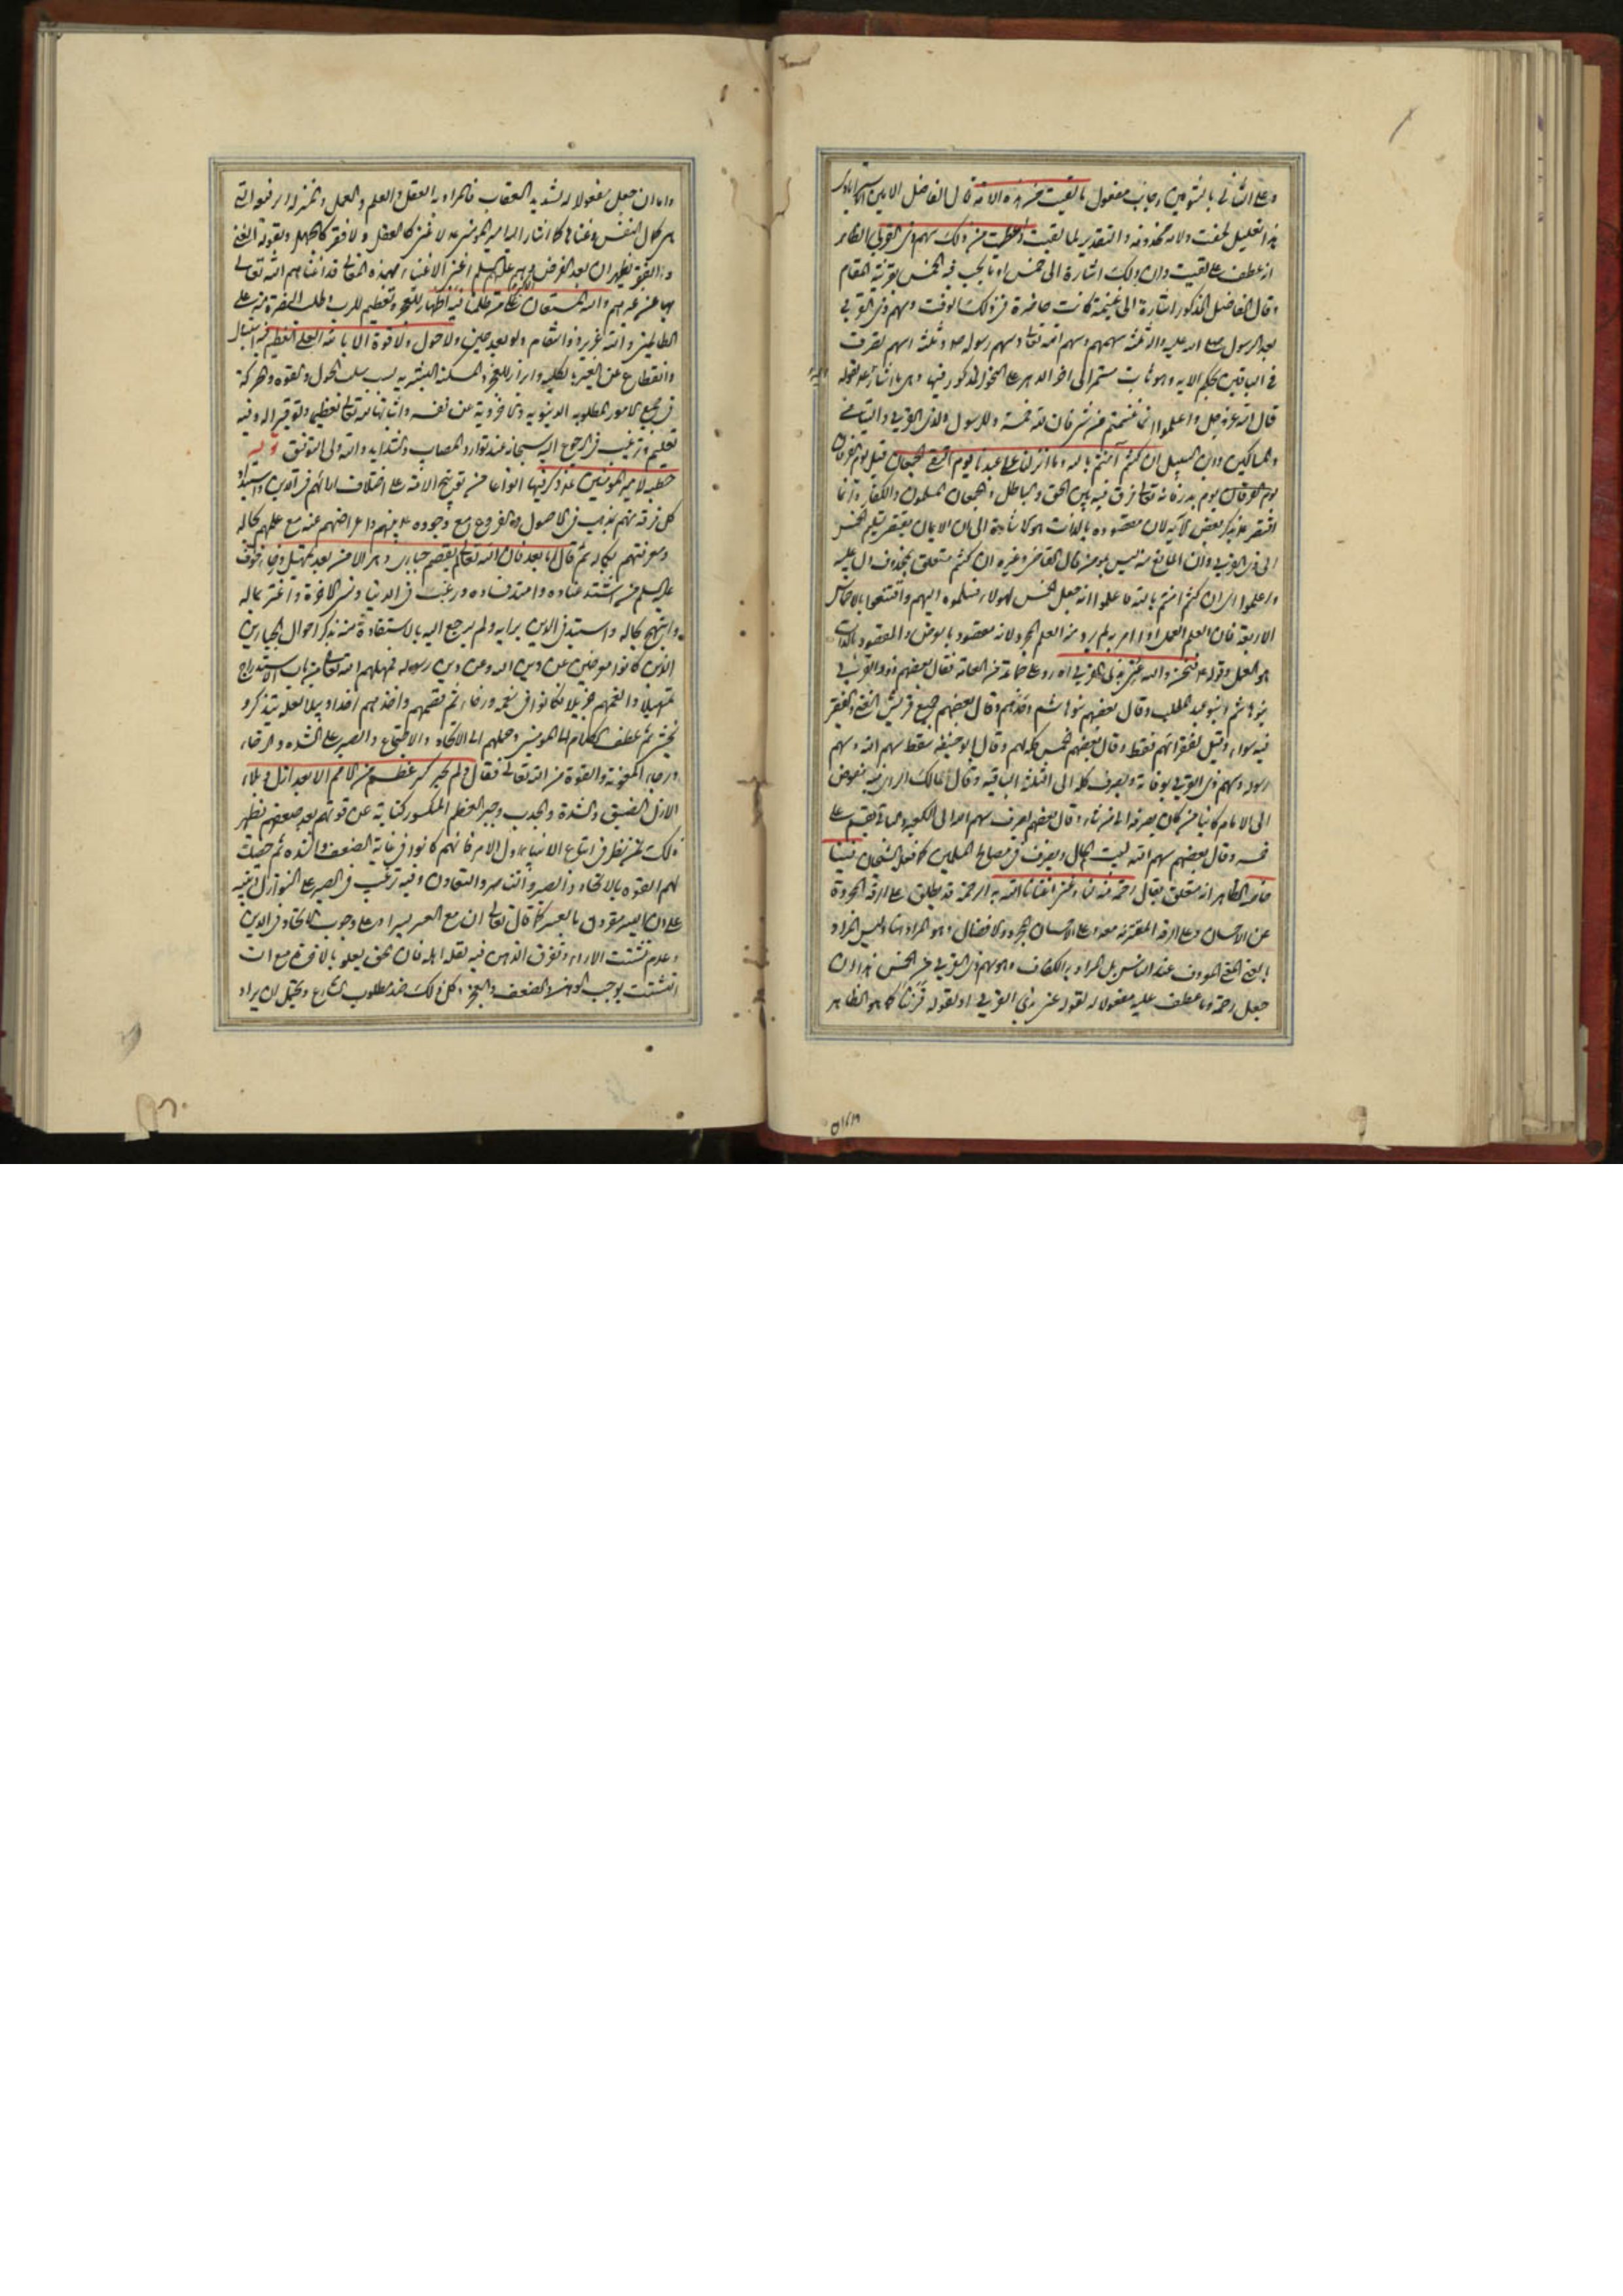 وعلى الثاني بالتنوين وجانب مفعول مالقيت من هذه الامة قال الفاضل الامين الاسترابادي
هذا تعليل لخفت ولانه محذوفة والتقدير لما لقيت واعطيت من ذلك سهم ذي القربى الظاهر
انه عطف على لقيت وان ذلك اشارة الى خمس او ما يجب فيه الخمس بقرينة المقام
وقال الفاضل المذكور اشارة الى غنيمة كانت حاضرة في ذلك الوقت وسهم ذي القربى
بعد الرسول صلى الله عليه واله ثلثة سهمهم وسهم الله تعالى وسهم رسوله وثلثة اسهم تصرف
في الباقين بحكم الاية وهو ثابت مستمر الى اخر الدهر على النحو المذكور فيها بقوله
قال الله عز وجل واعلموا انما غنمتم من شي فان لله خمسه وللرسول ولذي القربى واليتامى
والمساكين وابن السبيل ان كنتم آمنتم بالله وما انزلنا على عبدنا يوم الفرقان يوم التقى الجمعان قيل يوم الفرقان
يوم بدر فانه تعالى فرق فيه بين الحق والباطل والجمعان المسلمون والكفار وانما
اقتصر بذكر بعض الآية لان مقصوده بالذات هو الاشارة الى ان الايمان يقتضي تسليم الخمس
الى ذي القربى وان المانع منه ليس بمؤمن قال القاضي وغيره ان كنتم متعلق بمحذوف دل عليه
واعلموا اي ان كنتم امنتم بالله فاعلموا انه جعل الخمس لهؤلاء فسلموه اليهم واقتنعوا بالاخماس
الاربعة فان العلم العملي اذا امر به لم يرد منه العلم المجرد لانه مقصود بالعرض والمقصود بالذات
هو العمل وقوله فنحن والله عنى بذي القربى رد على جماعة من العامة فقال بعضهم ذو القربى
بنو هاشم وبنو عبد المطلب وقال بعضهم بنو هاشم وحدهم وقال بعضهم جميع قريش الغني والفقير
فيه سواء وقيل لفقرائهم فقط وقال بعضهم الخمس كله لهم وقال ابو حنيفة سقط سهم الله وسهم
رسوله وسهم ذي القربى بوفاته ويصرف كله الى الثلثة الباقية وقال مالك الراي فيه مفوض
الى الامام كائنا من كان يصرفه الى من شاء وقال بعضهم يصرف سهم الله الى الكعبة والباقي يقسم على
خمسه وقال بعضهم سهم الله لبيت المال ويصرف في مصالح المسلمين كما فعل الشيخان فينا
خاصة الظاهر انه متعلق بقال رحمة منه لنا وغنى اغنانا الله به الرحمة قد يطلق على الرقة المجردة
عن الاحسان وعلى الرقة المقترنة معه وعلى الاحسان المجرد والافضال وهو المراد هنا وليس المراد
بالغنى الغنى المعروف عند الناس بل المراد به الكفاف وهو سهم ذي القربى من الخمس هذا ان
جعل رحمة وما عطف عليه مفعولا له لقوله عنى بذي القربى او لقوله قرننا كما هو الظاهر
واما ان جعل مفعولا له لشديد العقاب فالمراد به العقل والعلم والعمل والمنزلة الرفيعة التي
هي كمال النفس وغناها كما اشار اليه امير المؤمنين لا غنى كالعقل ولا فقر كالجهل وبقوله الغنى
والفقر يظهران بعد العرض وهو عليه السلم اغنى الاغنياء بهذه المعاني قد اغناهم الله تعالى
بها عن غيرهم والله المستعان على من ظلمنا فيه اظهار للعجز وتعظيم للرب وطلب النصرة منه على
الظالمين والله عزيز ذو انتقام ولو بعد حين ولا حول ولا قوة الا بالله العلي العظيم فيه ابتهال
وانقطاع عن الغير بالكلية وابراز للعجز والمسكنة البشرية بسبب سلب الحول والقوة والحركة
في جميع الامور المطلوبة الدنيوية والاخروية عن نفسه واثباتها لله تعالى تعظيما وتوقيرا له وفيه
تعليم وترغيب في الرجوع اليه سبحانه عند توارد المصايب والشدايد والله ولي التوفيق قوله
خطبة لامير المؤمنين ذكر فيها انواعا من توبيخ الامة على اختلاف اراءهم في الدين واستبداد
كل فرقة منهم بمذهب في الاصول والفروع مع وجوده بينهم واعراضهم عنه مع علمهم بكماله
ومعرفتهم بكماله ثم قال اما بعد فان الله تعالى لم يقصم جباري دهر الا من بعد تمهيل ورخاء خوف
عليه السلم من اشتد عناده وامتد فساده ورغب في الدنيا ونسي الاخرة واغتر بماله
وابتهج بكماله واستبد في الدين برايه ولم يرجع اليه بالاستفادة منه بذكر احوال الجبارين
الذين كانوا معرضين عن دين الله وعن دين رسوله فمهلهم الله تعالى من باب الاستدراج
تمهيلا وانعمهم جزيلا فكانوا في نعمة ورخاء ثم قصمهم واخذهم اخذا وبيلا لعله يتذكر او
يخشى ثم عطف الكلام الى المؤمنين وحملهم الى الاتحاد والاجتماع والصبر على الشدة والرخاء
ورجاء المعونة والقوة من الله تعالى فقال ولم يجبر كسر عظم من الامم الا بعد ازل وبلاء
الازل الضيق والشدة والجدب وجبر العظم المكسور كناية عن قوتهم بعد ضعفهم يظهر
ذلك لمن نظر في اتباع الانبياء اول الامر فانهم كانوا في غاية الضعف والشدة ثم حصلت
لهم القوة بالاتحاد والصبر والتناصر والتعاون وفيه ترغيب في الصبر على النوازل وتنبيه
على ان اليسر مقرون بالعسر كما قال تعالى ان مع العسر يسرا وعلى وجوب الاتحاد في الدين
وعدم تشتت الاراء وتفرق الذهن فيه لقلة اهله فان الحق يعلو بالاخرة مع ان
التشتت يوجب الوهن والضعف والعجز وكل ذلك ضد مطلوب الشارع ويحتمل ان يراد